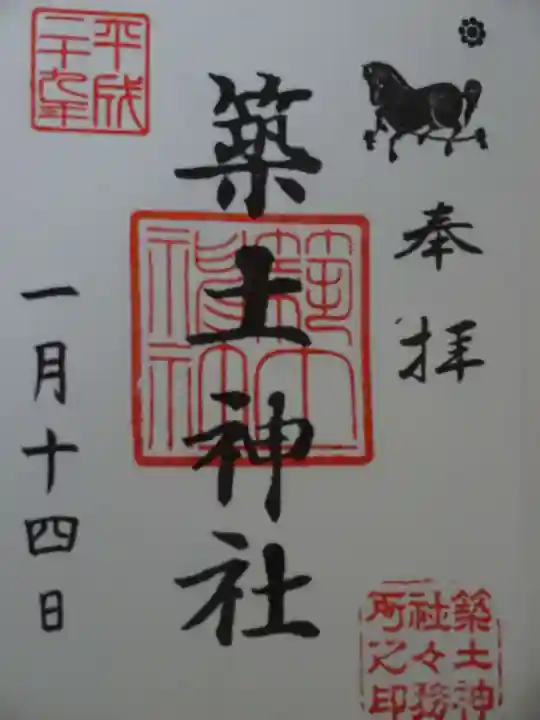 奉拝
築土神社
平成
二十九年
一月十四日
築土神
社々務
所之印